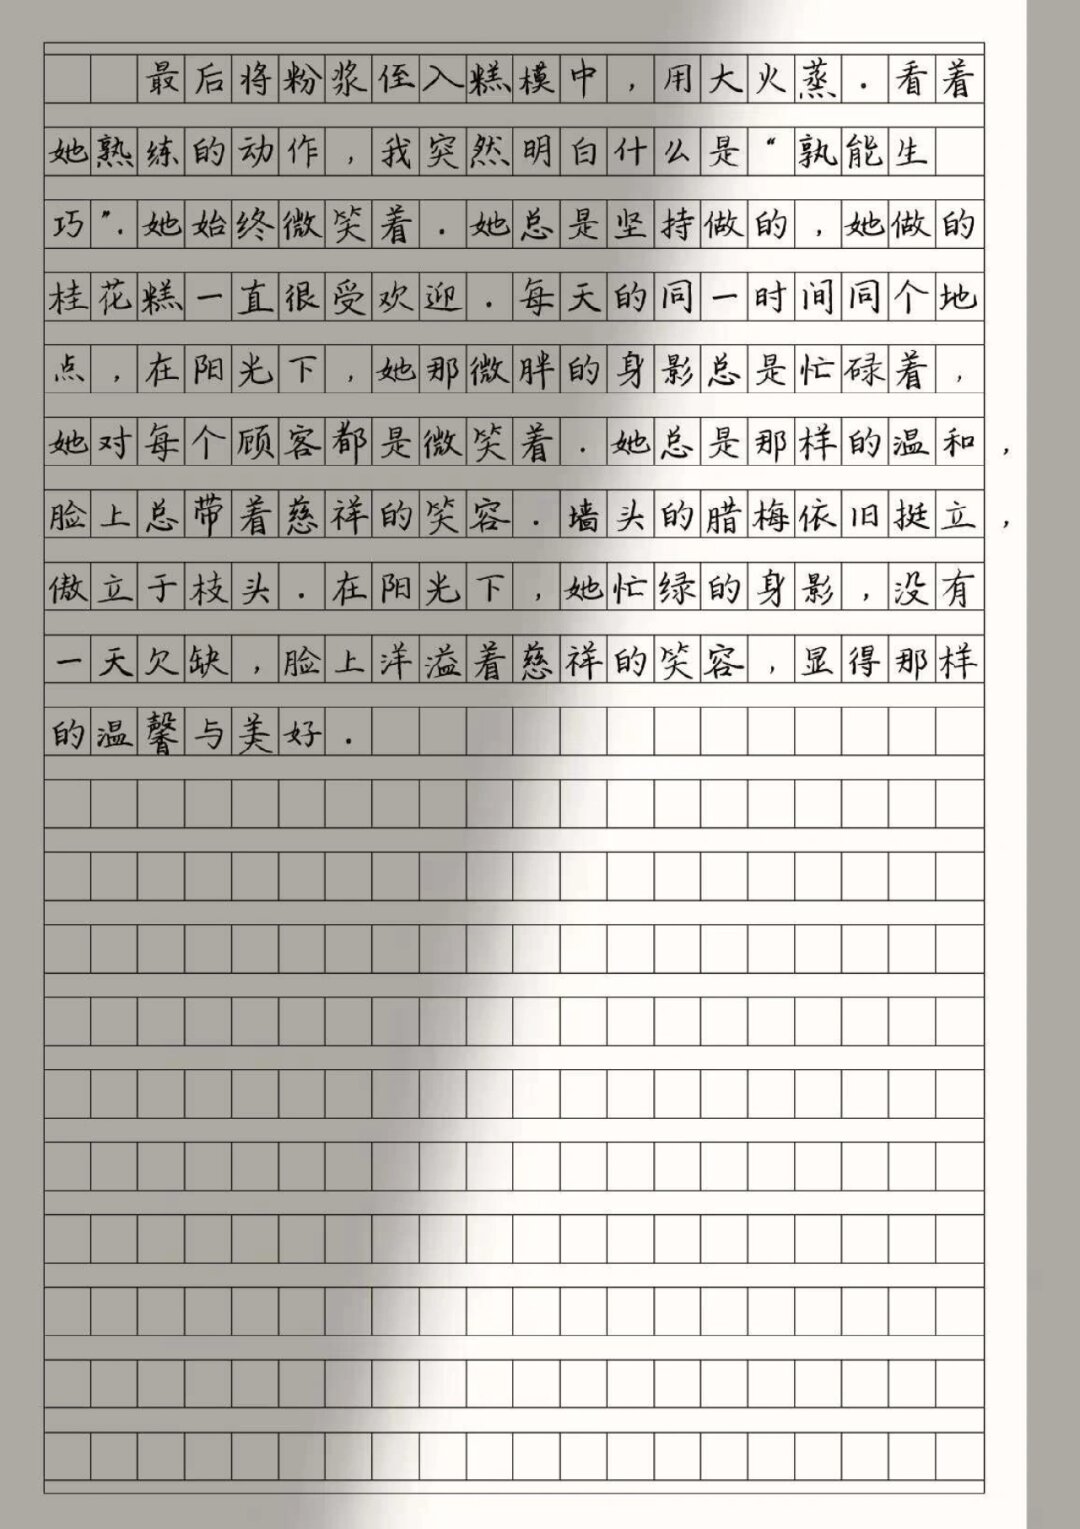 最后将粉浆侄入糕模中，用大火蒸．看着
她熟练的动作，我突然明白什么是“孰能生
巧”．她始终微笑着．她总是坚持做的，她做的
桂花糕一直很受欢迎．每天的同一时间同个地
点，在阳光下，她那微胖的身影总是忙碌着，
她对每个顾客都是微笑着．她总是那样的温和，
脸上总带着慈祥的笑容．墙头的腊梅依旧挺立，
傲立于枝头．在阳光下，她忙绿的身影，没有
一天欠缺，脸上洋溢着慈祥的笑容，显得那样
的温馨与美好．